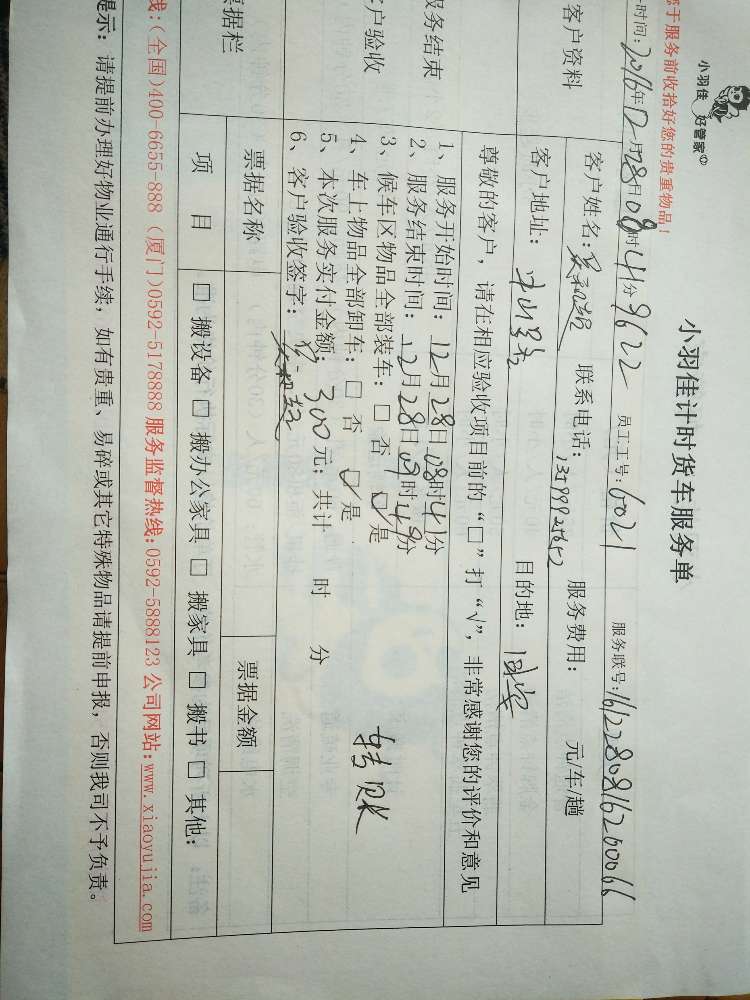 小羽佳 好管家
小羽佳计时货车服务单
于服务前收拾好您的贵重物品！
时间：2016年12月28日08时41分 9622 员工工号：6021 服务联号：161228081620066
客户资料
客户姓名： 联系电话： 服务费用： 元/车/趟
客户地址： 目的地：同安
服务结束
客户验收
尊敬的客户，请在相应验收项目前的“□”打“√”，非常感谢您的评价和意见
1、服务开始时间：12月28日08时41分
2、服务结束时间：12月28日09时49分
3、候车区物品全部装车：□ 否 ☑ 是
4、车上物品全部卸车：□ 否 ☑ 是
5、本次服务实付金额：300元；共计 时 分
转账
6、客户验收签字：
票据栏
票据名称 票据金额
项 目 □ 搬设备 □ 搬办公家具 □ 搬家具 □ 搬书 □ 其他：
线：(全国)400-6655-888 (厦门)0592-5178888 服务监督热线：0592-5888123 公司网站：www.xiaoyujia.com
提示：请提前办理好物业通行手续，如有贵重、易碎或其它特殊物品请提前申报，否则我司不予负责。